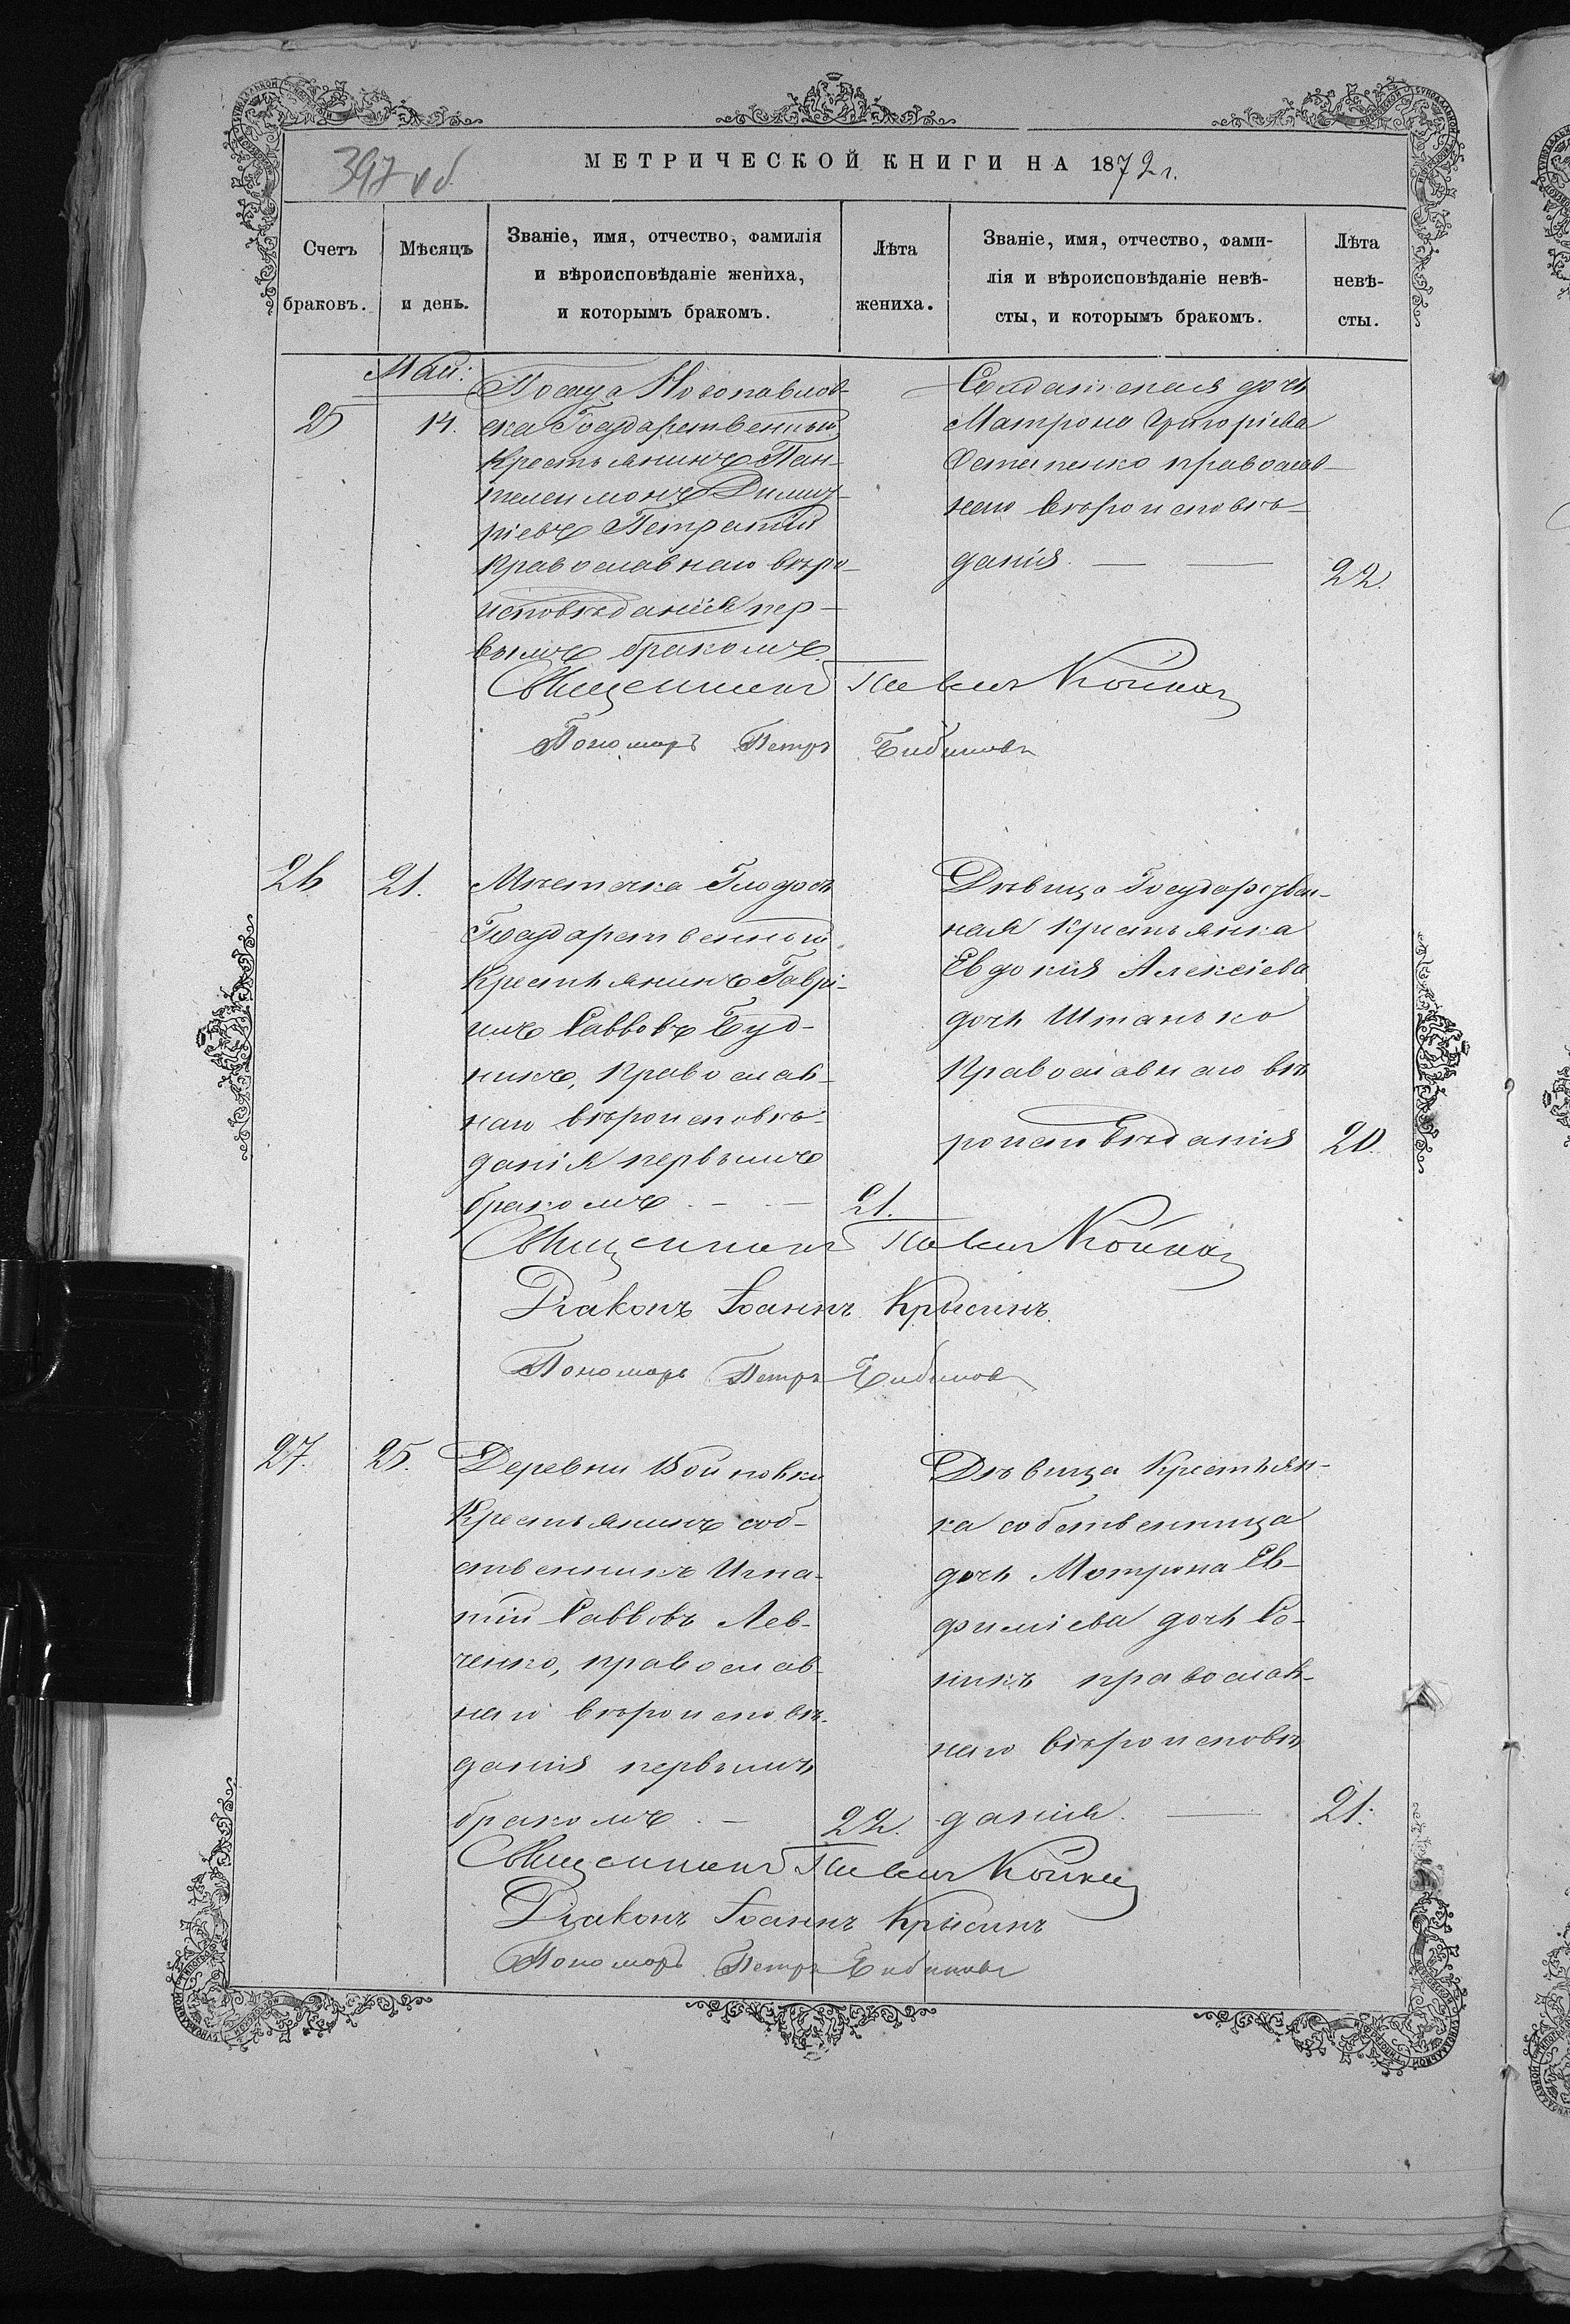 397 об
МЕТРИЧЕСКОЙ КНИГИ НА 1872 г.
Счетъ браковъ.
Мѣсяцъ и день.
Званіе, имя, отчество, фамилія
и вѣроисповѣданіе жениха,
и которымъ бракомъ.
Лѣта жениха.
Званіе, имя, отчество, фами-
лія и вѣроисповѣданіе невѣ-
сты, и которымъ бракомъ.
Лѣта невѣ-
сты.
Май:
25
14.
Посада Новопавлов-
ска Государственный
Крестьянинъ Пан-
телеимонъ Димит-
ріевъ Петраній
Православнаго вѣро-
исповѣданія пер-
вымъ бракомъ.
Солдатская дочь
Матрона Григоріева
Остапенко православ-
наго вѣроисповѣ-
данія. — —
22.
Священникъ Павелъ Койнац
Пономарь Петръ Бибиковъ
26
21.
Мѣстечка Глодосъ
Государственный
Крестьянинъ Гаврі-
илъ Савовъ Буд-
никъ, Православ-
наго вѣроисповѣ-
данія первымъ
бракомъ. — —
21.
Дѣвица Государствен-
ная крестьянка
Евдокія Алексіева
дочь Штанько
Православнаго вѣ
роисповѣданія
20.
Священникъ Павелъ Койнац
Діаконъ Іоаннъ Крысинъ.
Пономарь Петръ Бибиковъ
27.
25.
Деревни Войновки
Крестьянинъ соб-
ственникъ Игна-
тій Саввовъ Лев-
ченко, православ-
наго вѣроисповѣ-
данія первымъ
бракомъ. —
22.
Дѣвица Крестьян-
ка собственница
дочь Мотрона Ев-
фиміева дочь Со-
никъ православ-
наго вѣроисповѣ
данія. —
21.
Священникъ Павелъ Койнац
Діаконъ Іоаннъ Крысинъ
Пономарь Петръ Бибиковъ